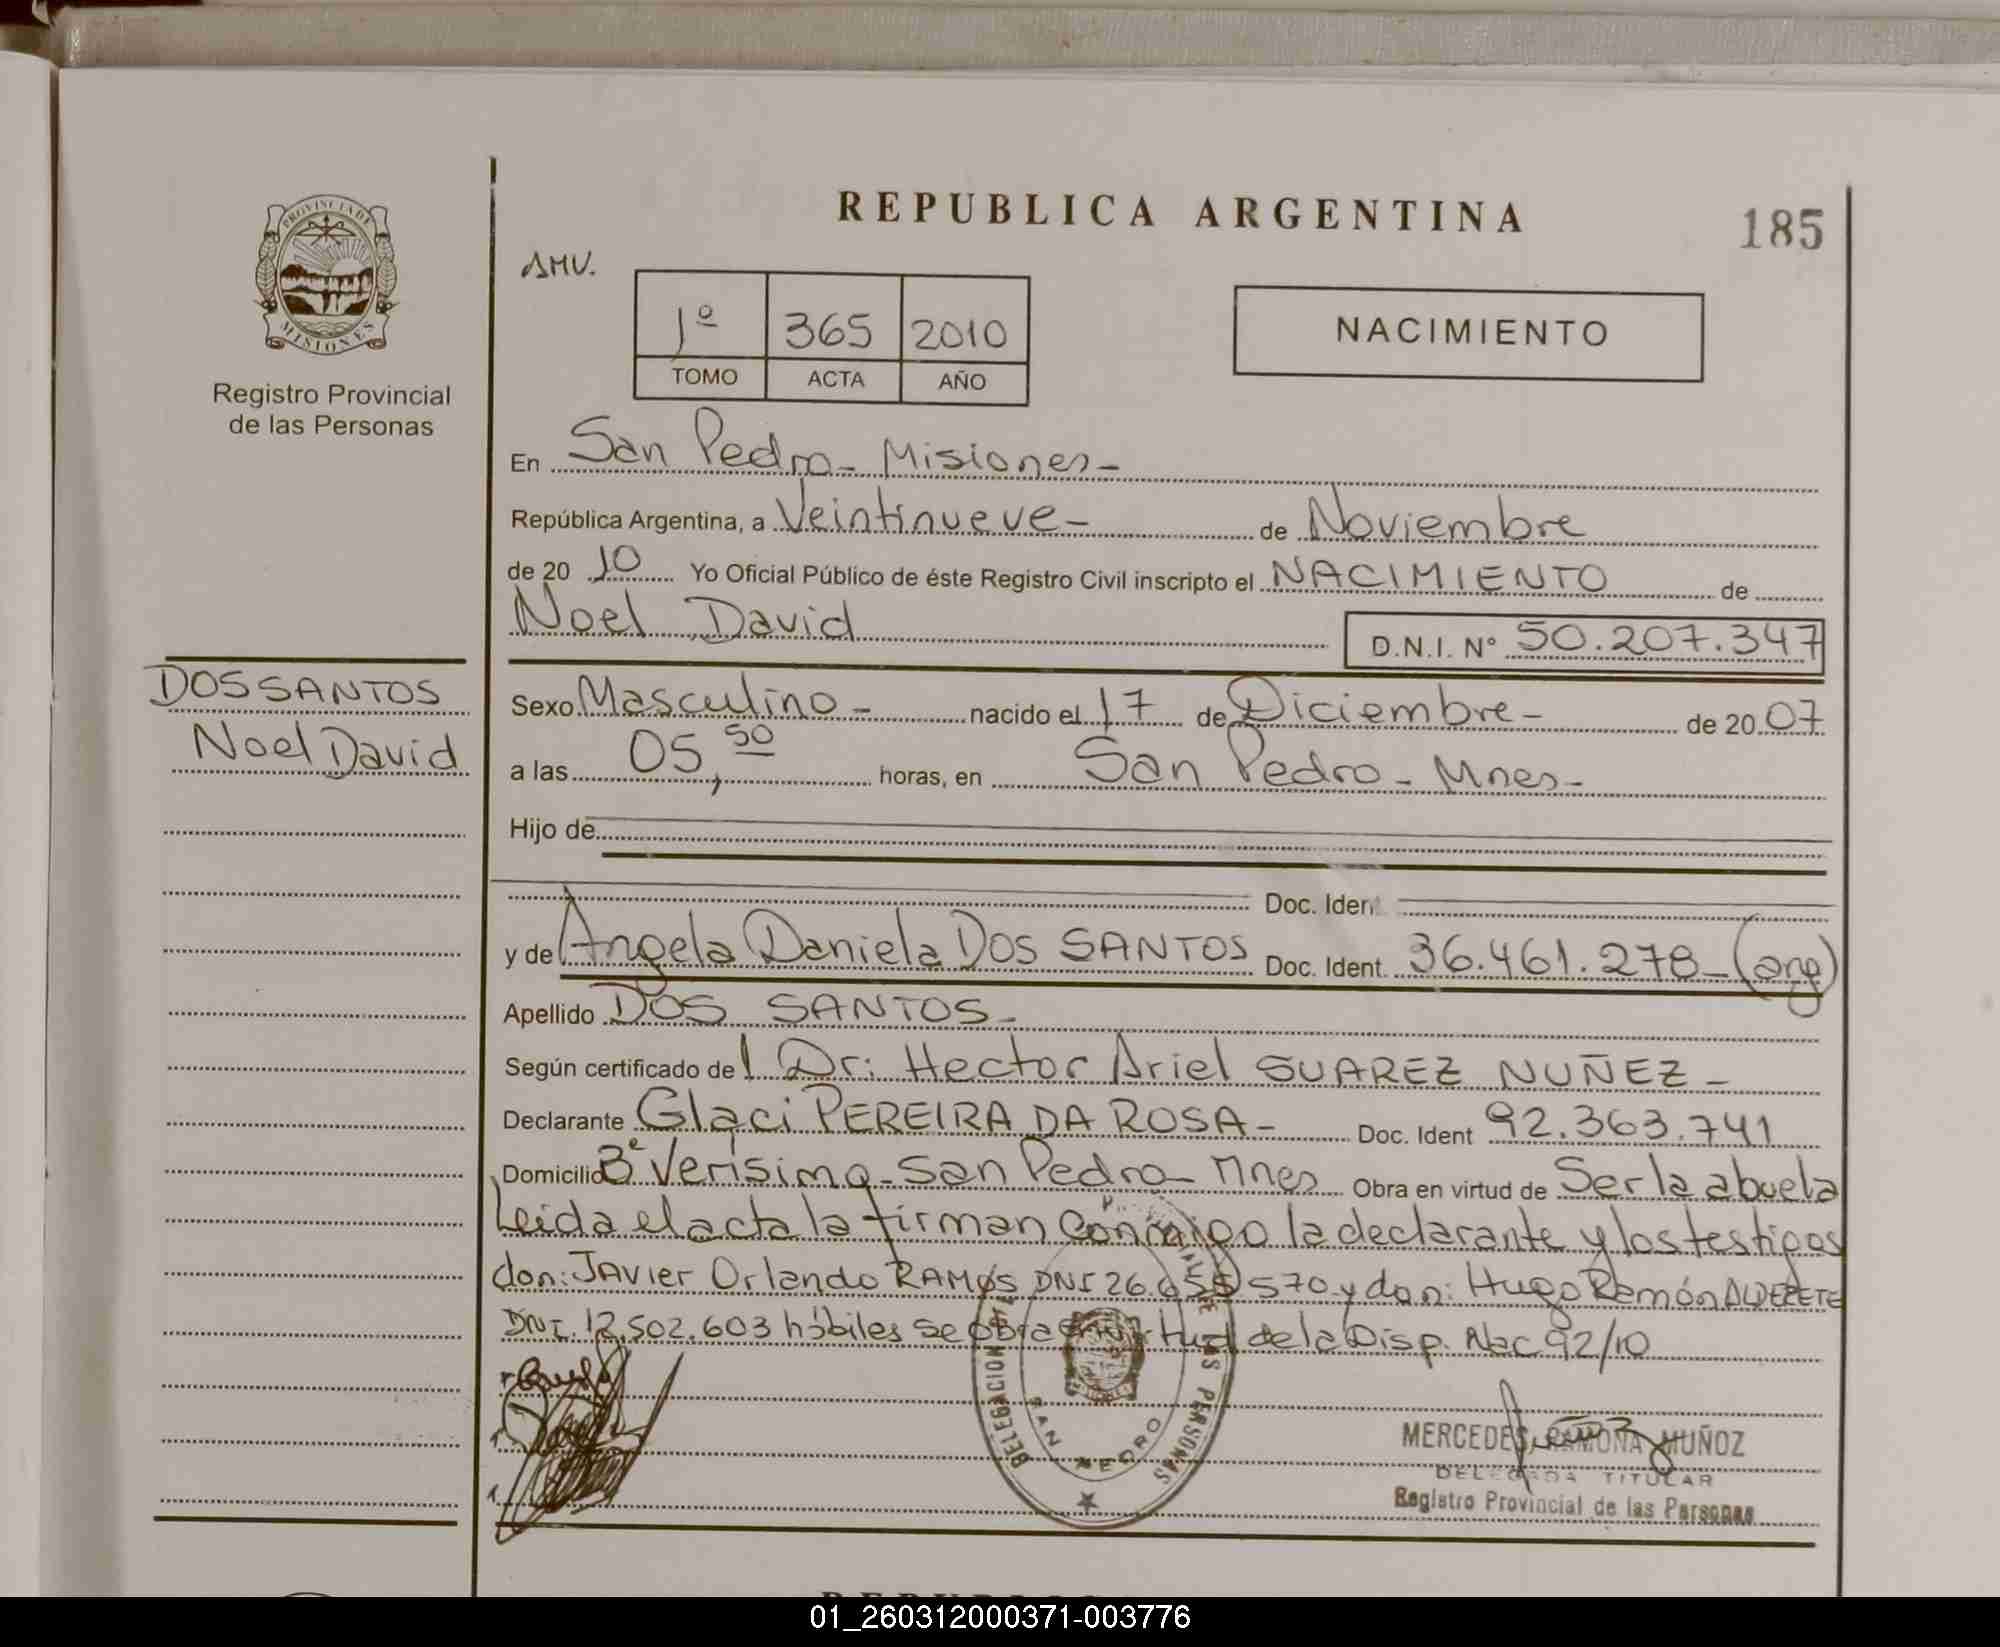 PROVINCIA DE
MISIONES
Registro Provincial
de las Personas
DOS SANTOS
Noel David
REPUBLICA ARGENTINA
185
AMV.
1º 365 2010
TOMO ACTA AÑO
NACIMIENTO
En San Pedro - Misiones -
República Argentina, a Veintinueve - de Noviembre
de 20 10 Yo Oficial Público de éste Registro Civil inscripto el NACIMIENTO de
Noel David D.N.I. Nº 50.207.347
Sexo Masculino - nacido el 17 de Diciembre - de 20 07
a las 05,50 horas, en San Pedro - Mnes -
Hijo de
Doc. Ident
y de Angela Daniela DOS SANTOS Doc. Ident. 36.461.278 - (arg)
Apellido DOS SANTOS -
Según certificado del Dr: Hector Ariel SUAREZ NUÑEZ -
Declarante Glaci PEREIRA DA ROSA - Doc. Ident 92.363.741
Domicilio Bº Verísimo - San Pedro - Mnes Obra en virtud de Ser la abuela
Leida el acta la firman conmigo la declarante y los testigos
don: JAVier Orlando RAMOS DNI 26.655 570 y don: Hugo Ramón ALDERETE
DNI. 12.502.603 hábiles se obra en virtud de la Disp. Nac 92/10
DELEGACION DE LAS PERSONAS
SAN PEDRO
MERCEDES RAMONA MUÑOZ
DELEGADA TITULAR
Registro Provincial de las Personas
01_260312000371-003776